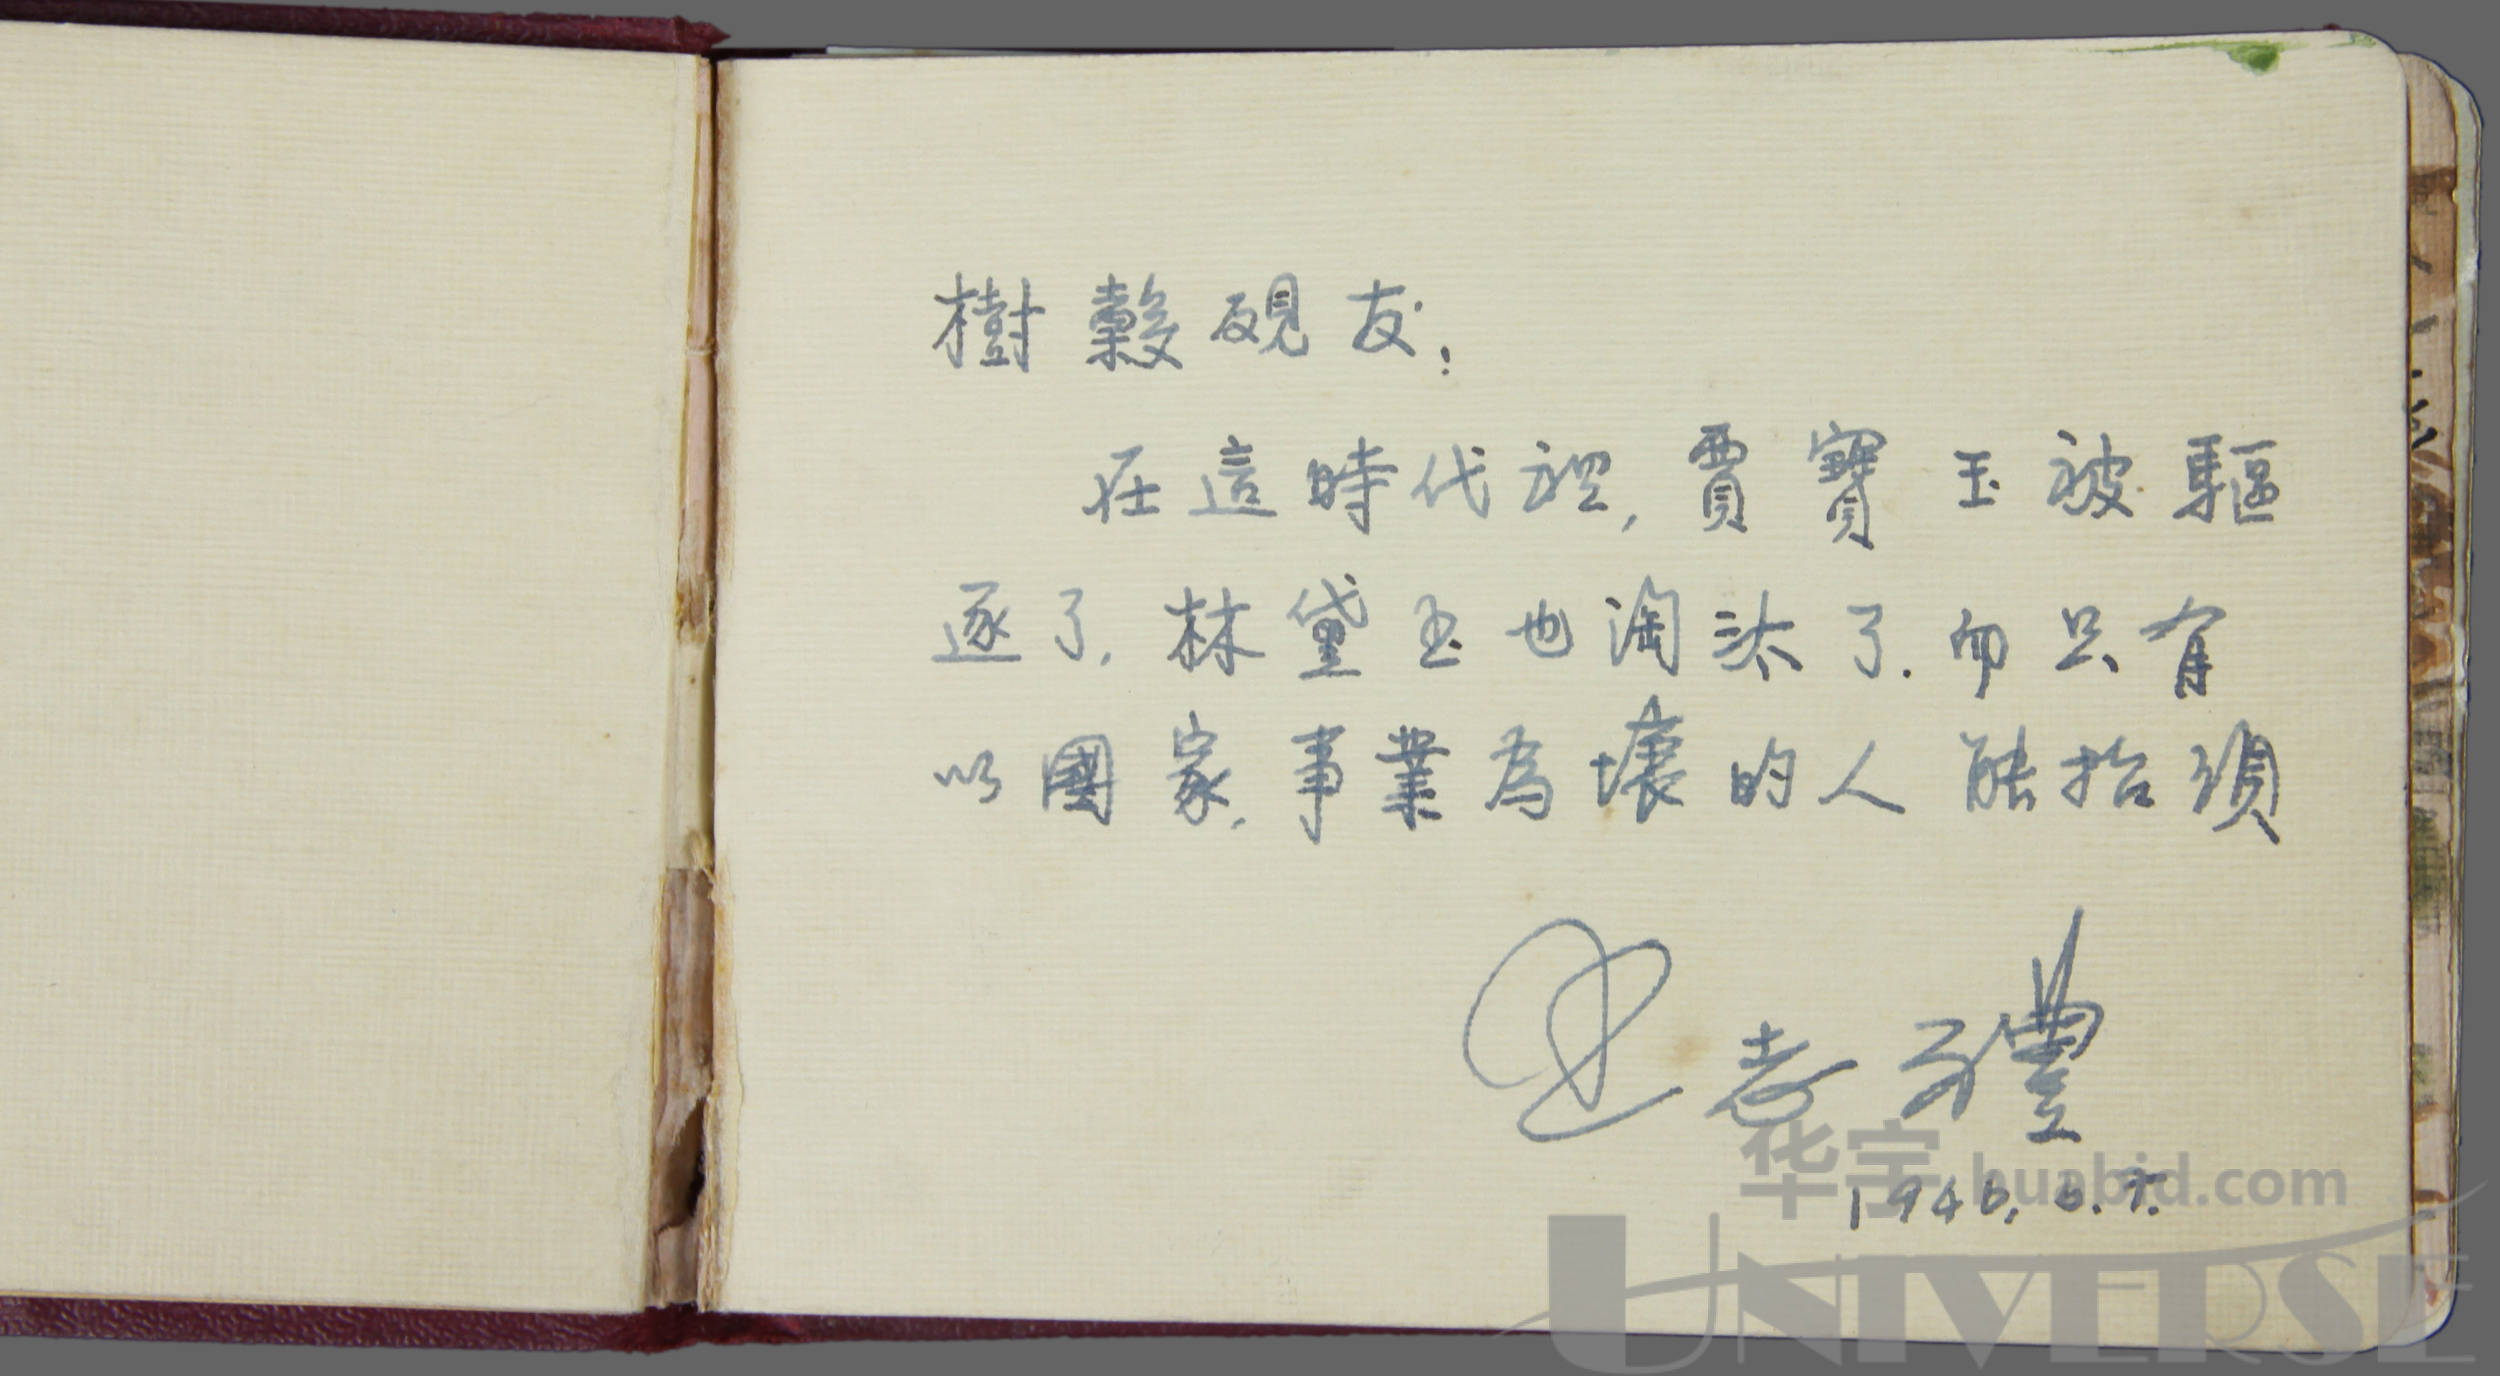 樹穀硯友:
在這時代裡,賈寶玉被驅
逐了,林黛玉也淘汰了.而只有
以國家,事業為懷的人能抬頭
孝禮
1946.6.7.
华宇 huabid.com
UNIVERSE